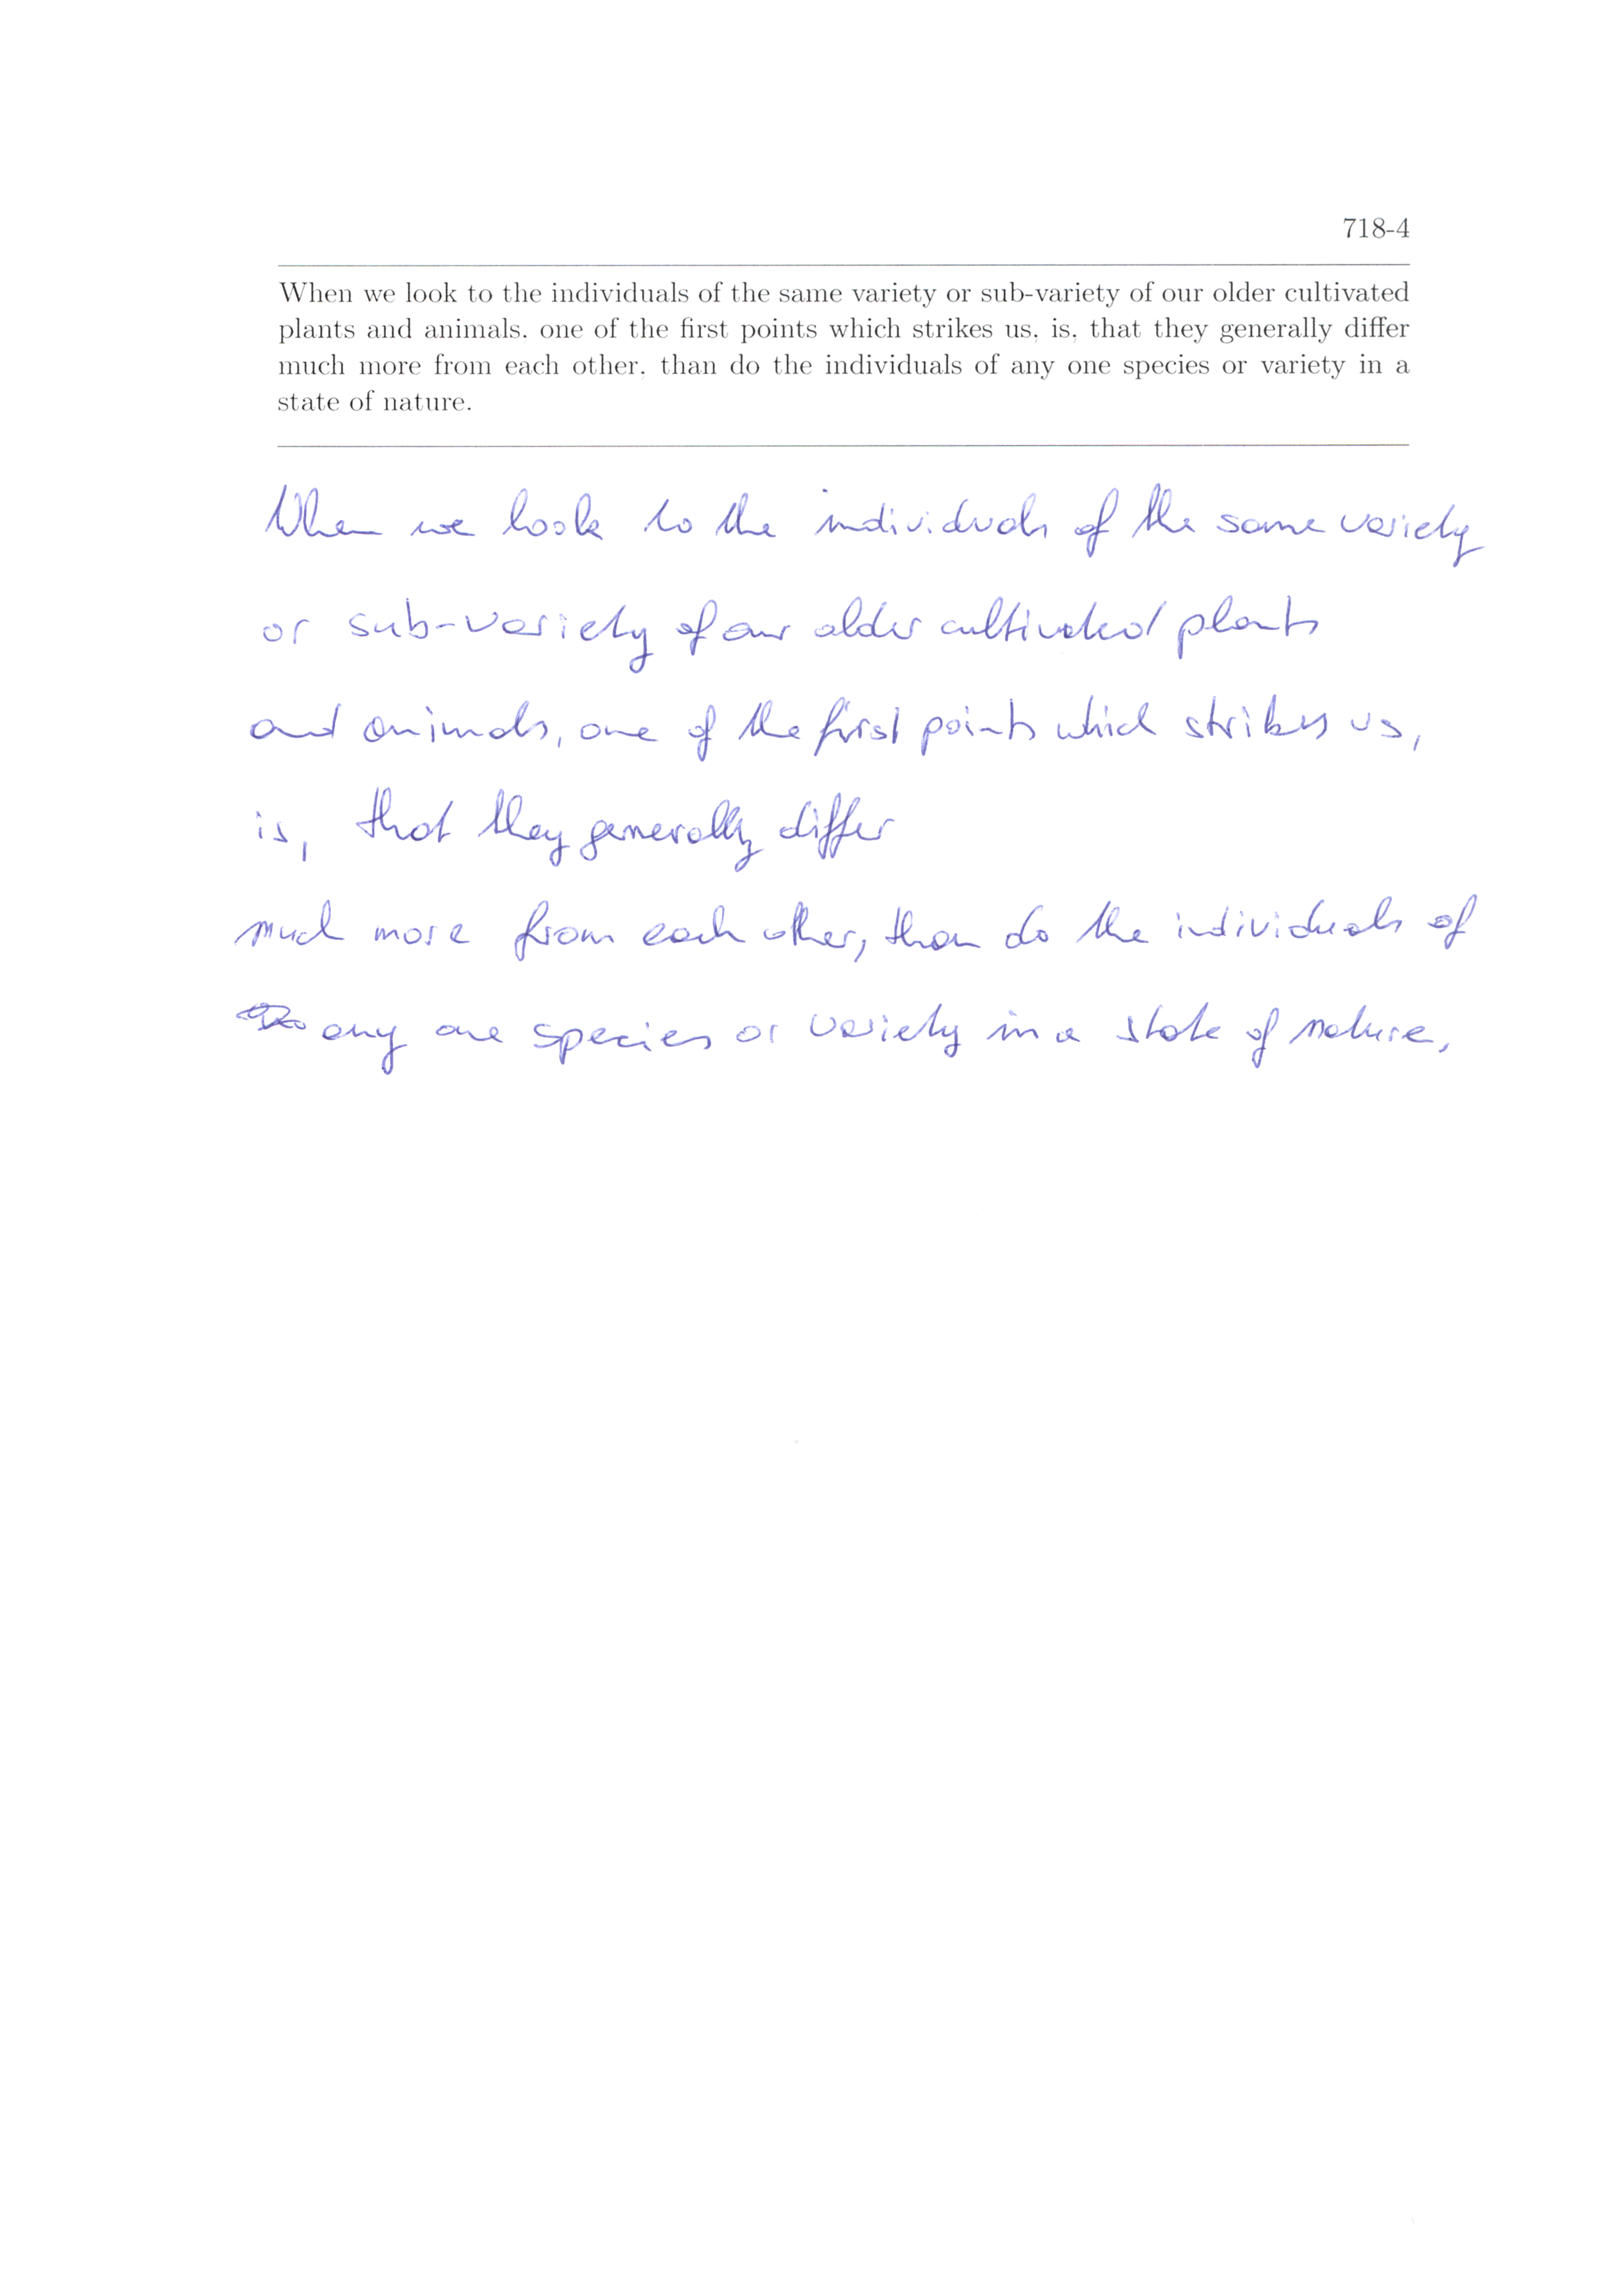 718-4
When we look to the individuals of the same variety or sub-variety of our older cultivated
plants and animals, one of the first points which strikes us, is, that they generally differ
much more from each other, than do the individuals of any one species or variety in a
state of nature.
When we look to the individuals of the same variety
or sub-variety of our older cultivated plants
and animals, one of the first points which strikes us,
is, that they generally differ
much more from each other, than do the individuals of
any one species or variety in a state of nature.